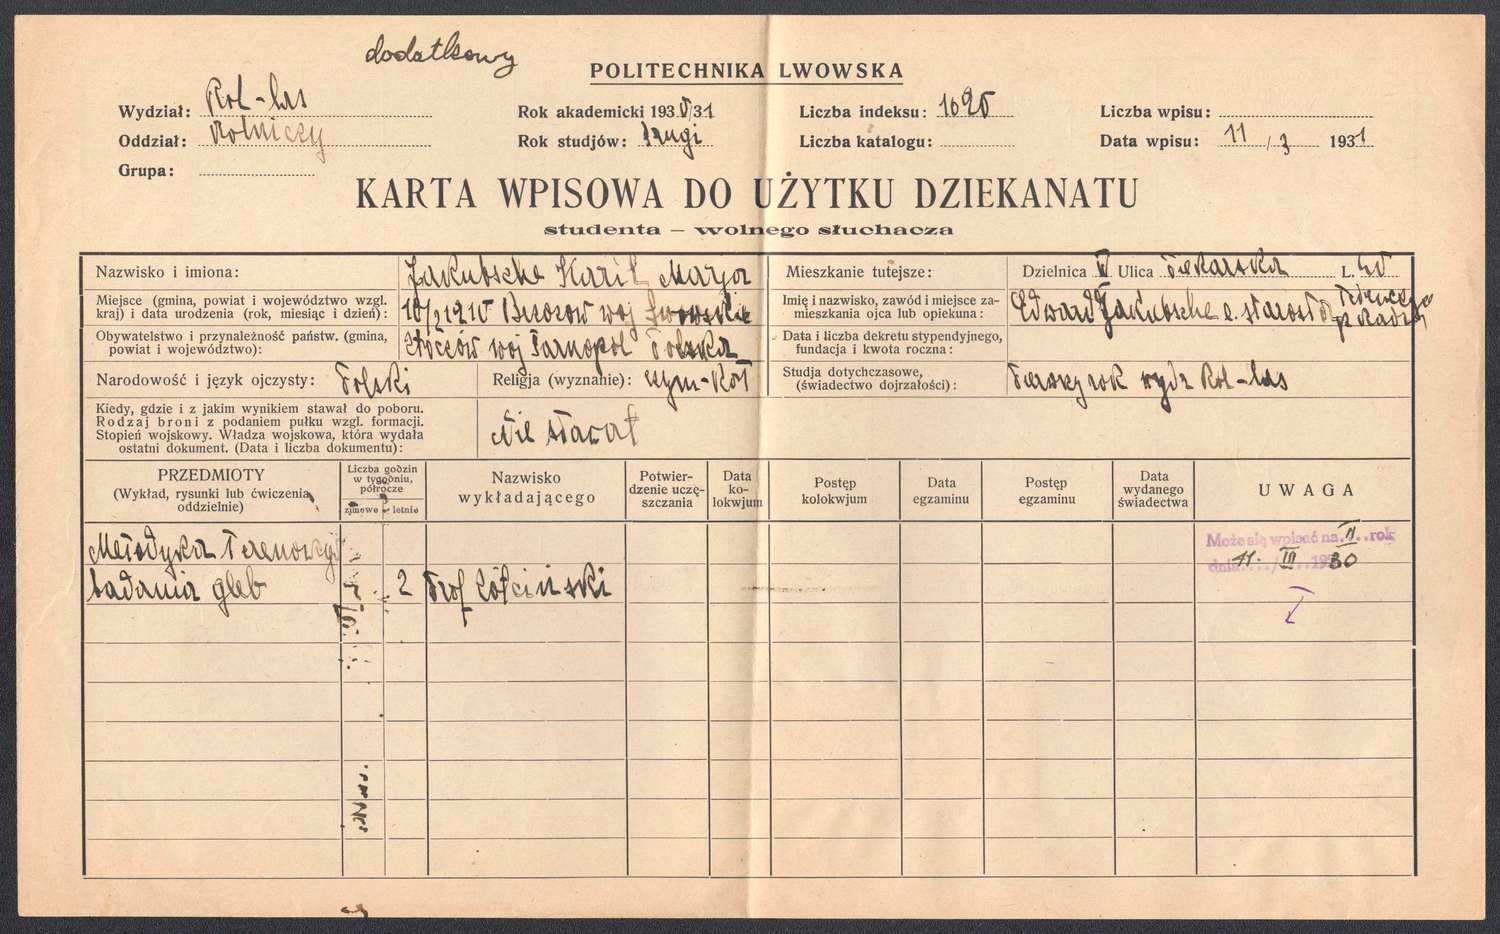 dodatkowy
POLITECHNIKA LWOWSKA
Wydział: Rol-las Rok akademicki 1930/31 Liczba indeksu: 1020 Liczba wpisu:
Oddział: Rolniczy Rok studjów: drugi Liczba katalogu: Data wpisu: 11/3 1931
Grupa:
KARTA WPISOWA DO UŻYTKU DZIEKANATU
studenta – wolnego słuchacza
Nazwisko i imiona: Jakubsche Karol Marja Mieszkanie tutejsze: Dzielnica Ulica Piekarska L.
Miejsce (gmina, powiat i województwo wzgl. kraj) i data urodzenia (rok, miesiąc i dzień): 1910 Brzozów woj Lwowskie
Imię i nazwisko, zawód i miejsce zamieszkania ojca lub opiekuna: Edward Jakubsche e. starosta
Obywatelstwo i przynależność państw. (gmina, powiat i województwo): Złoczów woj Tarnopol Polska
Data i liczba dekretu stypendyjnego, fundacja i kwota roczna:
Narodowość i język ojczysty: Polski Religja (wyznanie): rzym-kat
Studja dotychczasowe, (świadectwo dojrzałości): Pierwszy rok wydz Rol-las
Kiedy, gdzie i z jakim wynikiem stawał do poboru.
Rodzaj broni z podaniem pułku wzgl. formacji.
Stopień wojskowy. Władza wojskowa, która wydała
ostatni dokument. (Data i liczba dokumentu): Nie stawał
PRZEDMIOTY
(Wykład, rysunki lub ćwiczenia oddzielnie)
Liczba godzin w tygodniu, półrocze
zimowe letnie
Nazwisko wykładającego
Potwierdzenie uczęszczania
Data kolokwjum
Postęp kolokwjum
Data egzaminu
Postęp egzaminu
Data wydanego świadectwa
UWAGA
Metodyka Terenowych
badania gleb 2 Prof
Może się wpisać na II rok
dnia 11. / III 1930